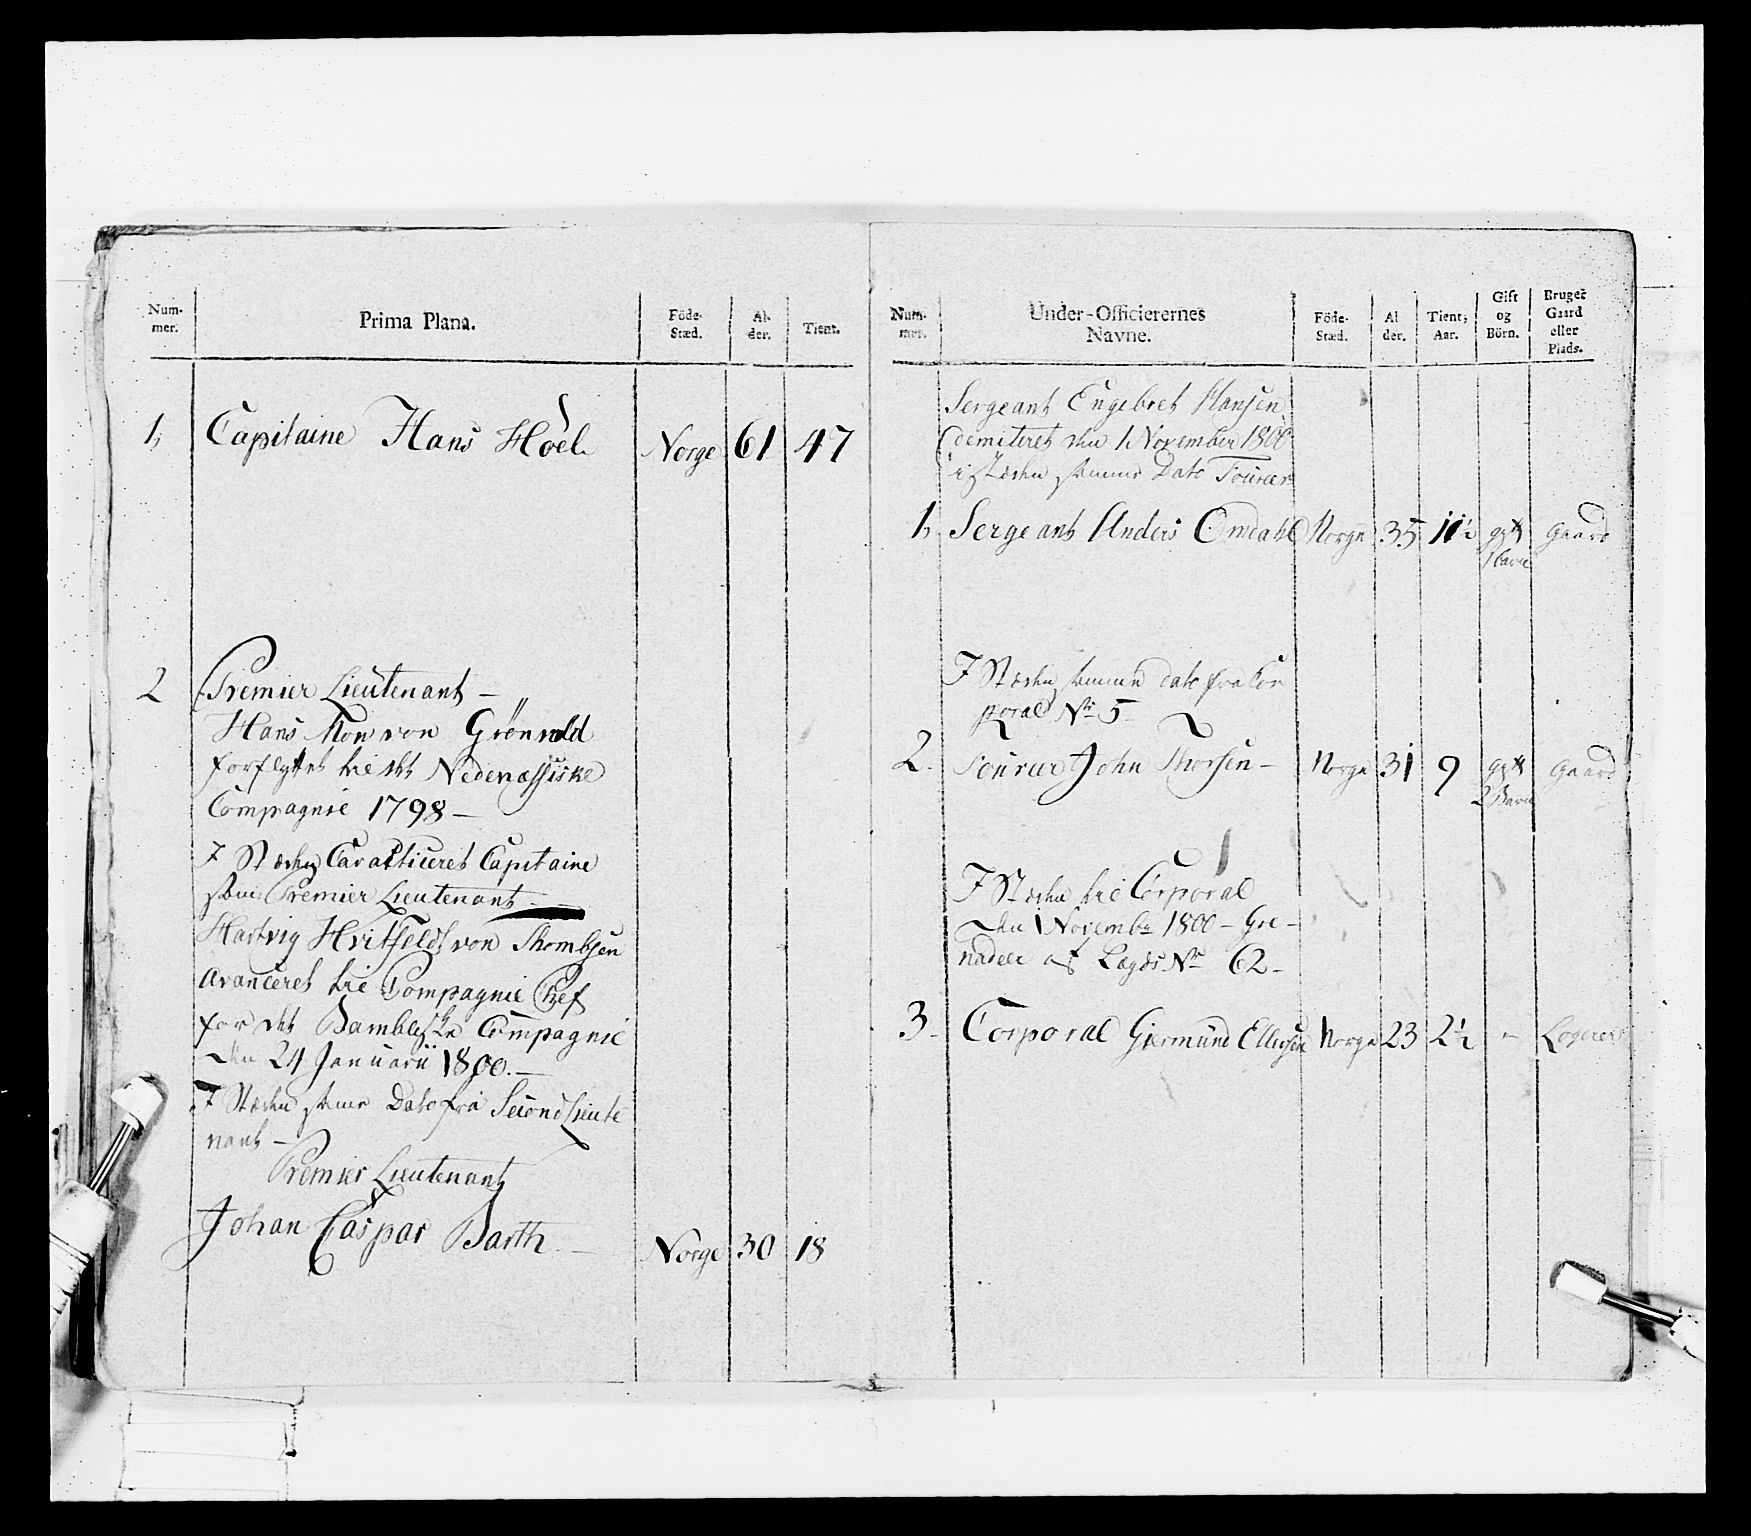 Num-
mer.
Prima Plana.
Föde-
Stæd.
Al-
der.
Tient.
1,
Capitaine Hans Höel
Norge
61
47
2
Premier Lieutenant –
Hans von Grönvold
forflyttet til det Nedenæssiske
Compagnie 1798 –
I Stæden Caracticeret Capitaine
som Premier Lieutenant
Hartvig Hvitfeldt von Thombsen
avanceret til Compagnie Chef
for det Bambleske Compagnie
den 24 Januarii 1800. –
I Stæden samme Dato fra Second Lieute
nant –
Premier Lieutenant
Johan Caspar Barth –
Norge
30
18
Num-
mer.
Under-Officierernes
Navne.
Föde-
Stæd.
Al
der.
Tient,
Aar.
Gift
og
Börn.
Bruger
Gaard
eller
Plads.
Sergeant Engebret Hansen
demiteret den 1 November 1800
i Steden samme Dato Fourier
1, Sergeant Anders Omdahl
Norge
35
11½
gift
1 barn
Gaard
I Stæden samme dato fra Cor
poral No 5
2. Fourier John Thorsen –
Norge
31
9
gift
2 Barn
Gaard
I Stæden til Corporal
den 1 Novembr 1800 – Gre-
nadeer af Lægds No 62 –
3. Corporal Giermund Ellefsen
Norge
23
2½
–
Logerer